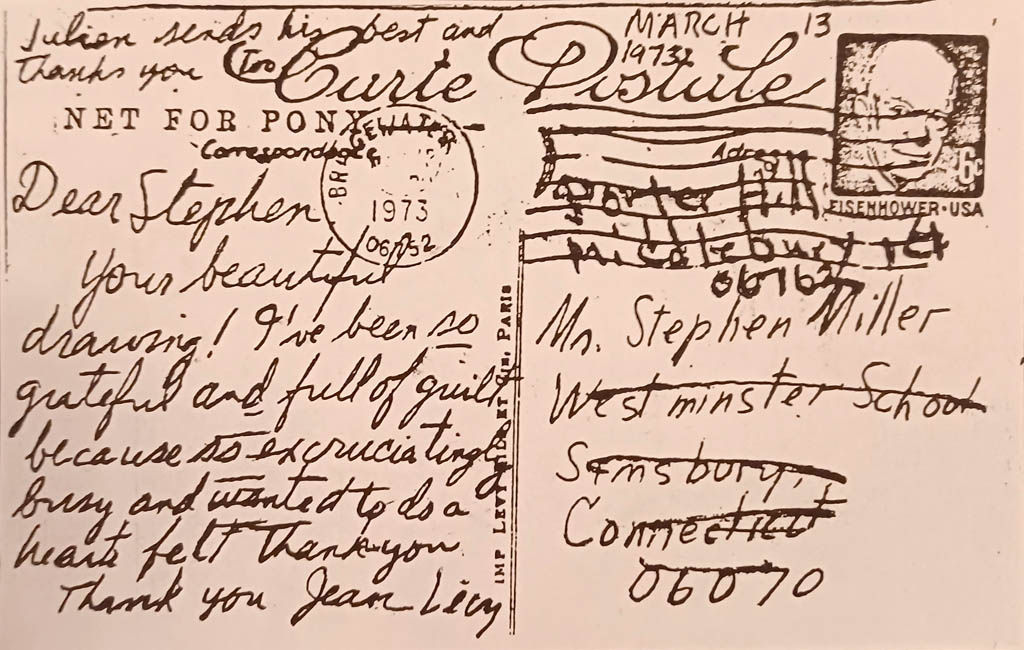 Julien sends his best and
thanks you too
Carte Postale
MARCH 13
1973
NET FOR PONY
Correspondance
Adresse
BR EWATER
1973
06752
6c
EISENHOWER·USA
Porter Hill
Middlebury Ct
06762
Dear Stephen
Your beautiful
drawing! I've been so
grateful and full of guilt
because so excruciatingly
busy and wanted to do a
heart felt thank you
Thank you Jean Levy
IMP LEVY ET CIE, PARIS
Mr. Stephen Miller
Westminster School
Simsbury,
Connecticut
06070